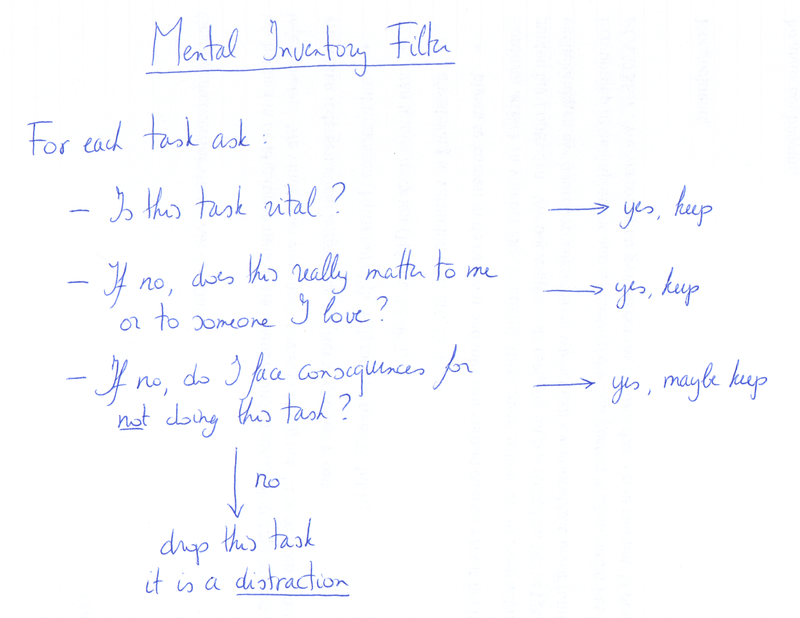 Mental Inventory Filter
For each task ask:
- Is this task vital? → yes, keep
- If no, does this really matter to me → yes, keep
or to someone I love?
- If no, do I face consequences for → yes, maybe keep
not doing this task?
no
drop this task
it is a distraction